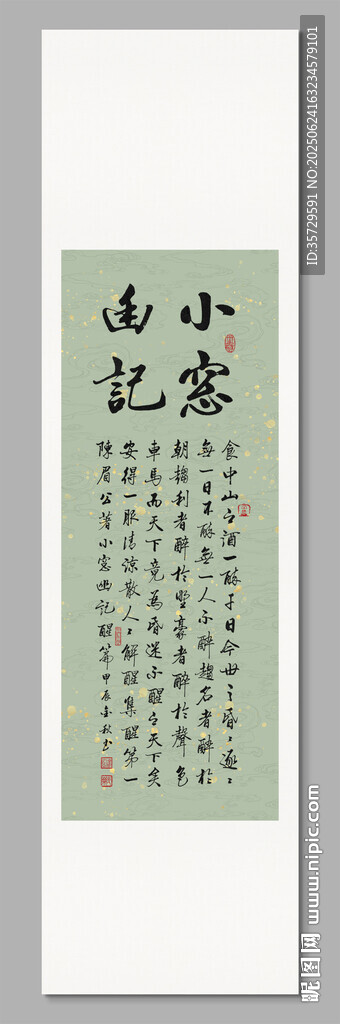 小窓
幽記
食中山之酒一醉千日今世之昏々逐々
無一日不醉無一人不醉趨名者醉於
朝趨利者醉於野豪者醉於聲色
車馬而天下竟為昏迷不醒之天下矣
安得一服清涼散人々解醒集醒第一
陳眉公著小窓幽記醒篇甲辰金秋书
ID:35729591 NO:20250624163234579101
昵图网 www.nipic.com